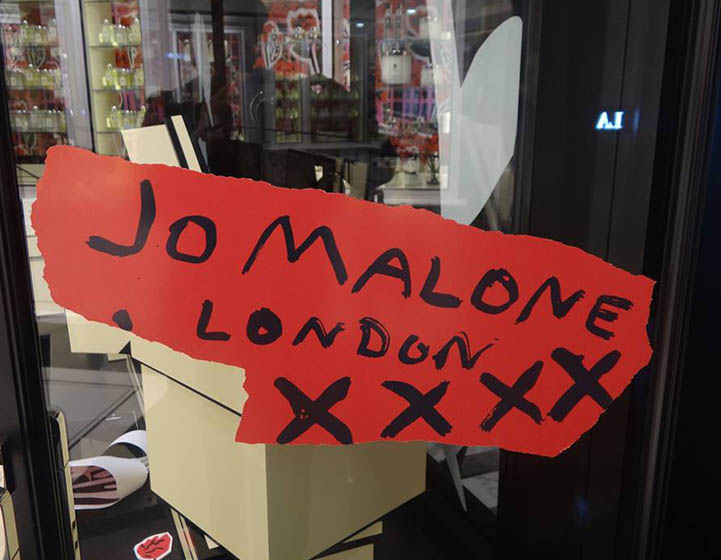 JO MALONE
LONDON
XXXX